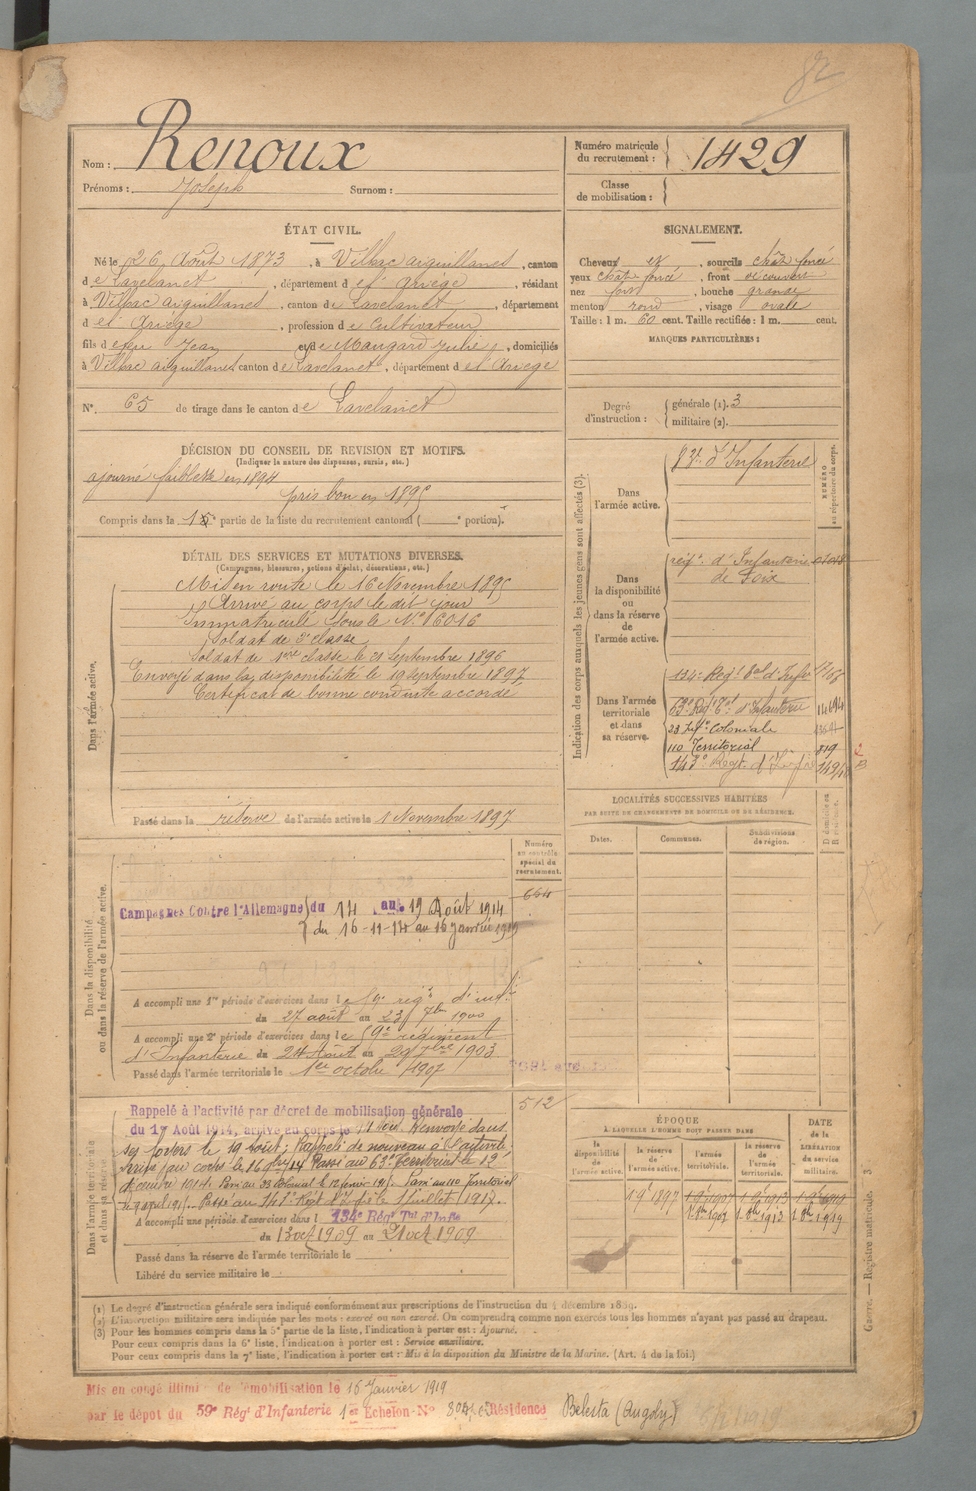 82
Nom : Renoux
Prénoms : Joseph Surnom :
Numéro matricule du recrutement : 1429
Classe de mobilisation :
ÉTAT CIVIL.
Né le 26 Août 1873, à Vilhac aiguillanes, canton
de Lavelanet, département de l'Ariège, résidant
à Vilhac aiguillanes, canton de Lavelanet, département
de l'Ariège, profession de Cultivateur
fils de feu Jean et de Maugard Julie, domiciliés
à Vilhac aiguillanes canton de Lavelanet, département de l'Ariège
N° 65 de tirage dans le canton de Lavelanet
SIGNALEMENT.
Cheveux et, sourcils chât. foncé
yeux chât. foncé, front découvert
nez fort, bouche grande
menton rond, visage ovale
Taille : 1 m. 60 cent. Taille rectifiée : 1 m. cent.
MARQUES PARTICULIÈRES :
Degré d'instruction : générale (1). 3
militaire (2).
DÉCISION DU CONSEIL DE REVISION ET MOTIFS.
(Indiquer la nature des dispenses, sursis, etc.)
ajourné faiblesse en 1894
pris bon en 1895
Compris dans la partie de la liste du recrutement cantonal ( ° portion).
DÉTAIL DES SERVICES ET MUTATIONS DIVERSES.
(Campagnes, blessures, actions d'éclat, décorations, etc.)
Dans l'armée active.
Mis en route le 16 Novembre 1895
Arrivé au corps le dit jour
Immatriculé sous le N° 16016
Soldat de 2e classe
Soldat de 1ère classe le 21 Septembre 1896
Envoyé dans la disponibilité le 19 septembre 1897
Certificat de bonne conduite accordé
Passé dans la réserve de l'armée active le 1 Novembre 1897
Indication des corps auxquels les jeunes gens sont affectés (3).
NUMÉRO au répertoire du corps.
Dans l'armée active.
d'Infanterie
Dans la disponibilité ou dans la réserve de l'armée active.
régt. d'Infanterie
de Foix
Dans l'armée territoriale et dans sa réserve.
134e Régt. Tal d'Infie
63e Régt Tal d'Infanterie 14694
Coloniale
110 Territorial 819
143e Regt. d'Infie
LOCALITÉS SUCCESSIVES HABITÉES
PAR SUITE DE CHANGEMENTS DE DOMICILE OU DE RÉSIDENCE.
Dates. Communes. Subdivisions de région. D. domicile ou R. résidence.
Dans la disponibilité ou dans la réserve de l'armée active.
Numéro au contrôle spécial du recrutement.
664
Campagnes Contre l'Allemagne du 14 au 19 Août 1914
du 16-11-14 au 16 Janvier 1919
A accompli une 1re période d'exercices dans le 59e régt d'inf.
du 27 août au 23 7bre 1900
A accompli une 2e période d'exercices dans le 59e régiment
d'Infanterie du 24 Août au 1903
Passé dans l'armée territoriale le 1er octobre 1907
512
Dans l'armée territoriale et dans sa réserve.
Rappelé à l'activité par décret de mobilisation générale
du 1er Août 1914, arrivé au corps le Renvoyé dans
ses foyers le 19 août ; Rappelé de nouveau à l'activité,
Arrivé au corps le 16 9bre 14 Passé au 63e Territorial le 12
décembre 1914. Passé au Colonial le 12 février 1915. Passé au 110 Territorial
le 9 avril 1915. Passé au 143e Régt d'I. le 1 Juillet 1917.
A accompli une période d'exercices dans l 134e Régt Tal d'Infie
du 13 oct 1909 au 21 oct 1909
Passé dans la réserve de l'armée territoriale le
Libéré du service militaire le
ÉPOQUE
À LAQUELLE L'HOMME DOIT PASSER DANS
la disponibilité de l'armée active. la réserve de l'armée active. l'armée territoriale. la réserve de l'armée territoriale.
DATE de la LIBÉRATION du service militaire.
1 9e 1897 1 9e 1907 1 9e 1913 1 9e 1919
1 8bre 1907 1 8bre 1913 1 8bre 1919
(1) Le degré d'instruction générale sera indiqué conformément aux prescriptions de l'instruction du 4 décembre 1889.
(2) L'instruction militaire sera indiquée par les mots : exercé ou non exercé. On comprendra comme non exercés tous les hommes n'ayant pas passé au drapeau.
(3) Pour les hommes compris dans la 5e partie de la liste, l'indication à porter est : Ajourné.
Pour ceux compris dans la 6e liste, l'indication à porter est : Service auxiliaire.
Pour ceux compris dans la 7e liste, l'indication à porter est : Mis à la disposition du Ministre de la Marine. (Art. 4 de la loi.)
Guerre. — Registre matricule. 3.
Mis en congé illimité de démobilisation le 16 Janvier 1919
par le dépôt du 59e Régt d'Infanterie 1er Echelon N° Résidence Belesta